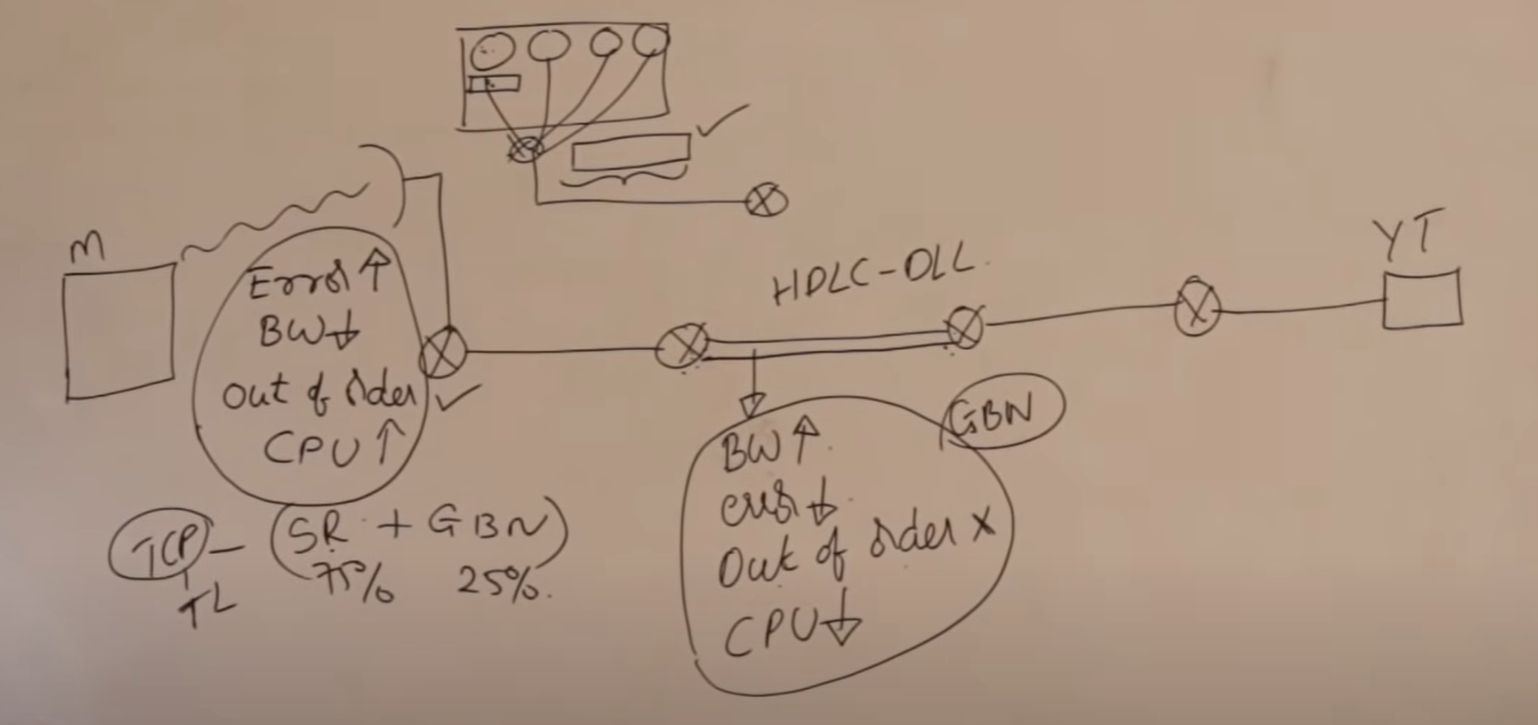 M
Error ↑
BW ↓
Out of order ✓
CPU ↑
TCP - (SR + GBN)
TL 75% 25%.
HDLC-DLL
YT
GBN
BW ↑
error ↓
Out of order x
CPU ↓